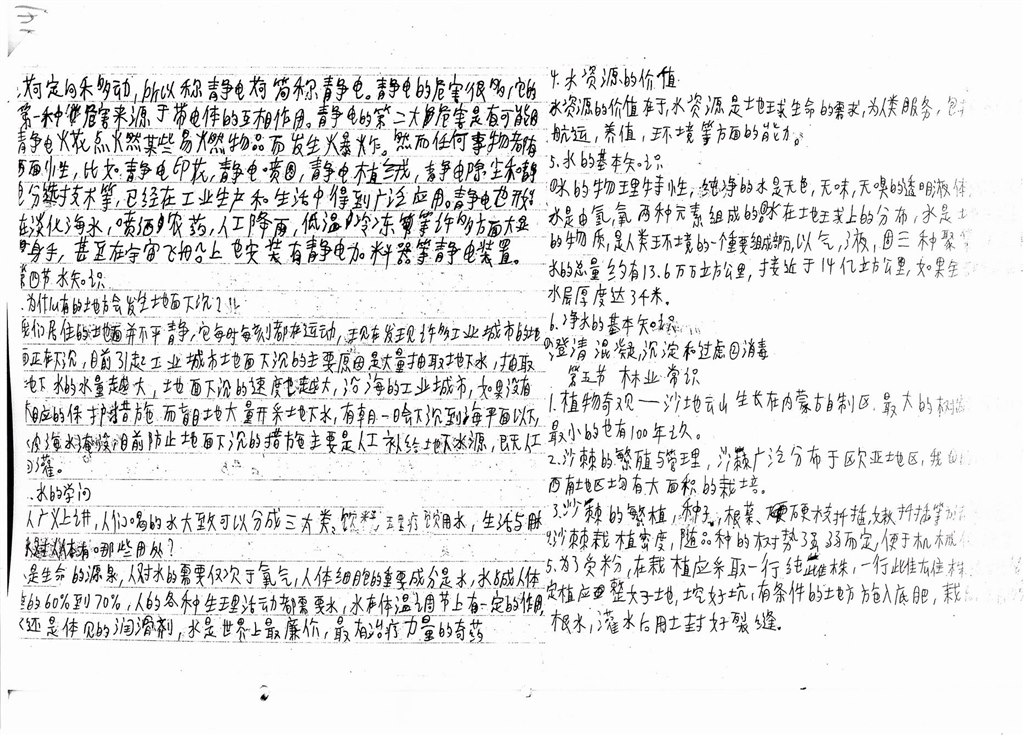 荷定向移动,所以称静电荷简称静电。静电的危害很多,它的
第一种危害来源于带电体的互相作用。静电的第二大危害是有可能因
静电火花点火燃某些易燃物品而发生爆炸。然而任何事物都有
两面小性,比如静电印花,静电喷图,静电植绒,静电除尘和静
电分选技术等,已经在工业生产和生活中得到广泛应用。静电也开始
在淡化海水,喷洒农药,人工降雨,低温冷冻等许多方面大显
身手,甚至在宇宙飞船上也安装有静电加料器等静电装置。
第四节 水知识
为什么有的地方会发生地面下沉?
我们居住的地面并不平静,它每时每刻都在运动,现在发现许多工业城市的地
面正在下沉,目前引起工业城市地面下沉的主要原因是大量抽取地下水,抽取
地下水的水量越大,地面下沉的速度也越大,沿海的工业城市,如果没有
相应的保护措施而盲目地大量开采地下水,有朝一日会下沉到海平面以下,
海水淹没目前防止地面下沉的措施主要是人工补给地下水源,
灌。
水的学问
广义上讲,人们喝的水大致可以分成三大类、饮料,医疗饮用水,生活
有哪些用处?
是生命的源泉,人对水的需要仅次于氧气,人体细胞的重要成分是水,水占成人体
重的60%到70%,人的各种生理活动都需要水,水在体温调节上有一定的作用,
还是体内的润滑剂,水是世界上最廉价,最有治疗力量的奇药
4.水资源的价值
水资源的价值在于水资源是地球生命的需求,为人类服务,包
航运,养殖,环境等方面的能力。
5.水的基本知识
①水的物理特性,纯净的水是无色,无味,无嗅的透明液体
水是由氢,氧两种元素组成的②水在地球上的分布,水是地
的物质,是人类环境的一个重要组成部分,以气,液,固三种聚
水的总量约有13.6万万立方公里,接近于14亿立方公里,如果全
水层厚度达3千米。
6.净水的基本知识
①澄清 混凝,沉淀和过虑②消毒
第五节 林业常识
1.植物奇观——沙地云山生长在内蒙古自制区.最大的树
最小的也有100年之久。
2.沙棘的繁殖与管理,沙棘广泛分布于欧亚地区,我
西有地区均有大面积的栽培。
3.沙棘的繁植,种子,根蘖、硬枝扦插,嫩扦插
沙棘栽植密度,随品种的树势弱而定,便于机械
5.为了受粉,在栽植应采取一行纯雌株,一行
定植应整好土地,挖好坑,有条件的地方施入底肥,栽
根水,灌水后用土封好裂缝。